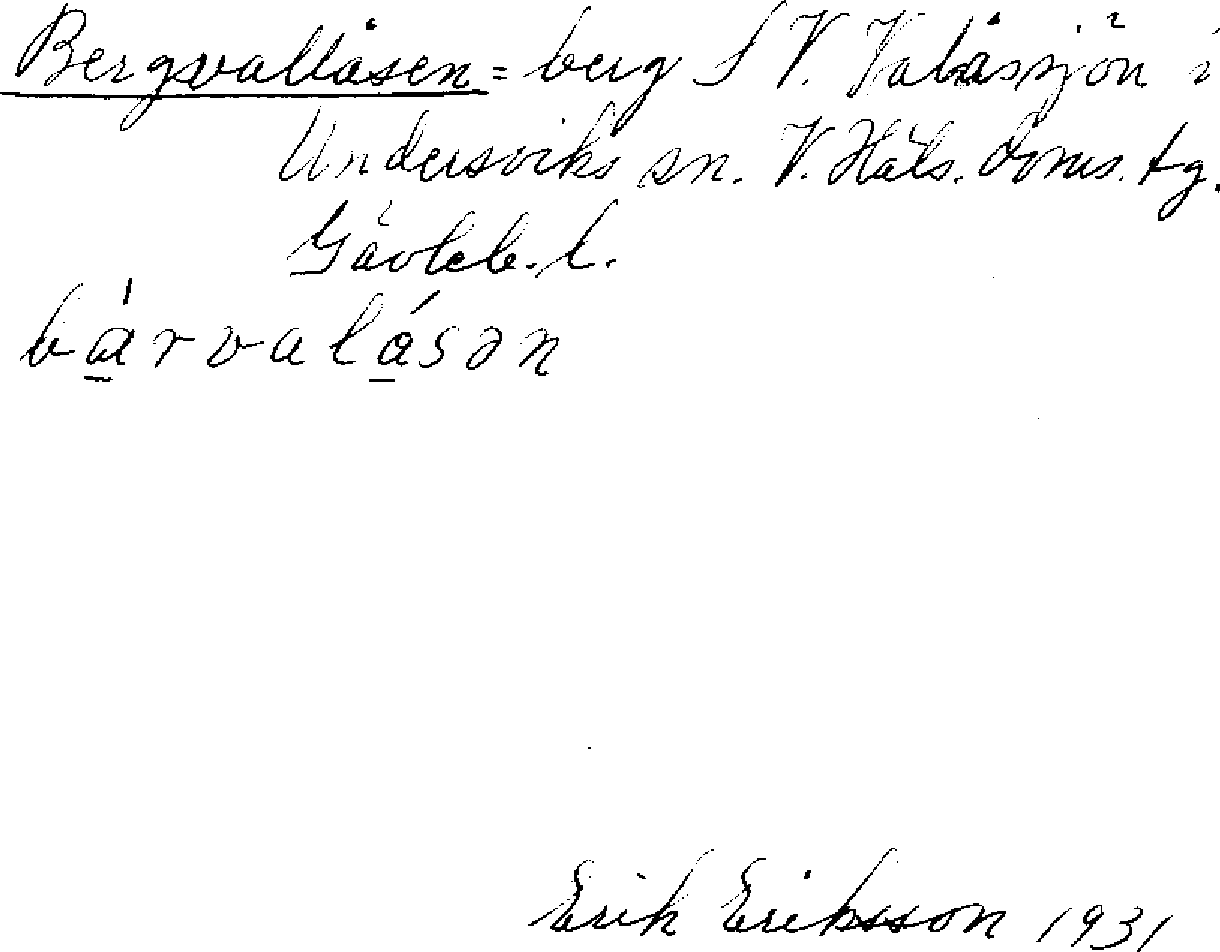 Bergvallåsen = berg S V. Valåssjön i
Undersviks sn. V. Häls. doms. tg.
Gävleb. l.
bá̱rvalá̱sən
Erik Eriksson 1931